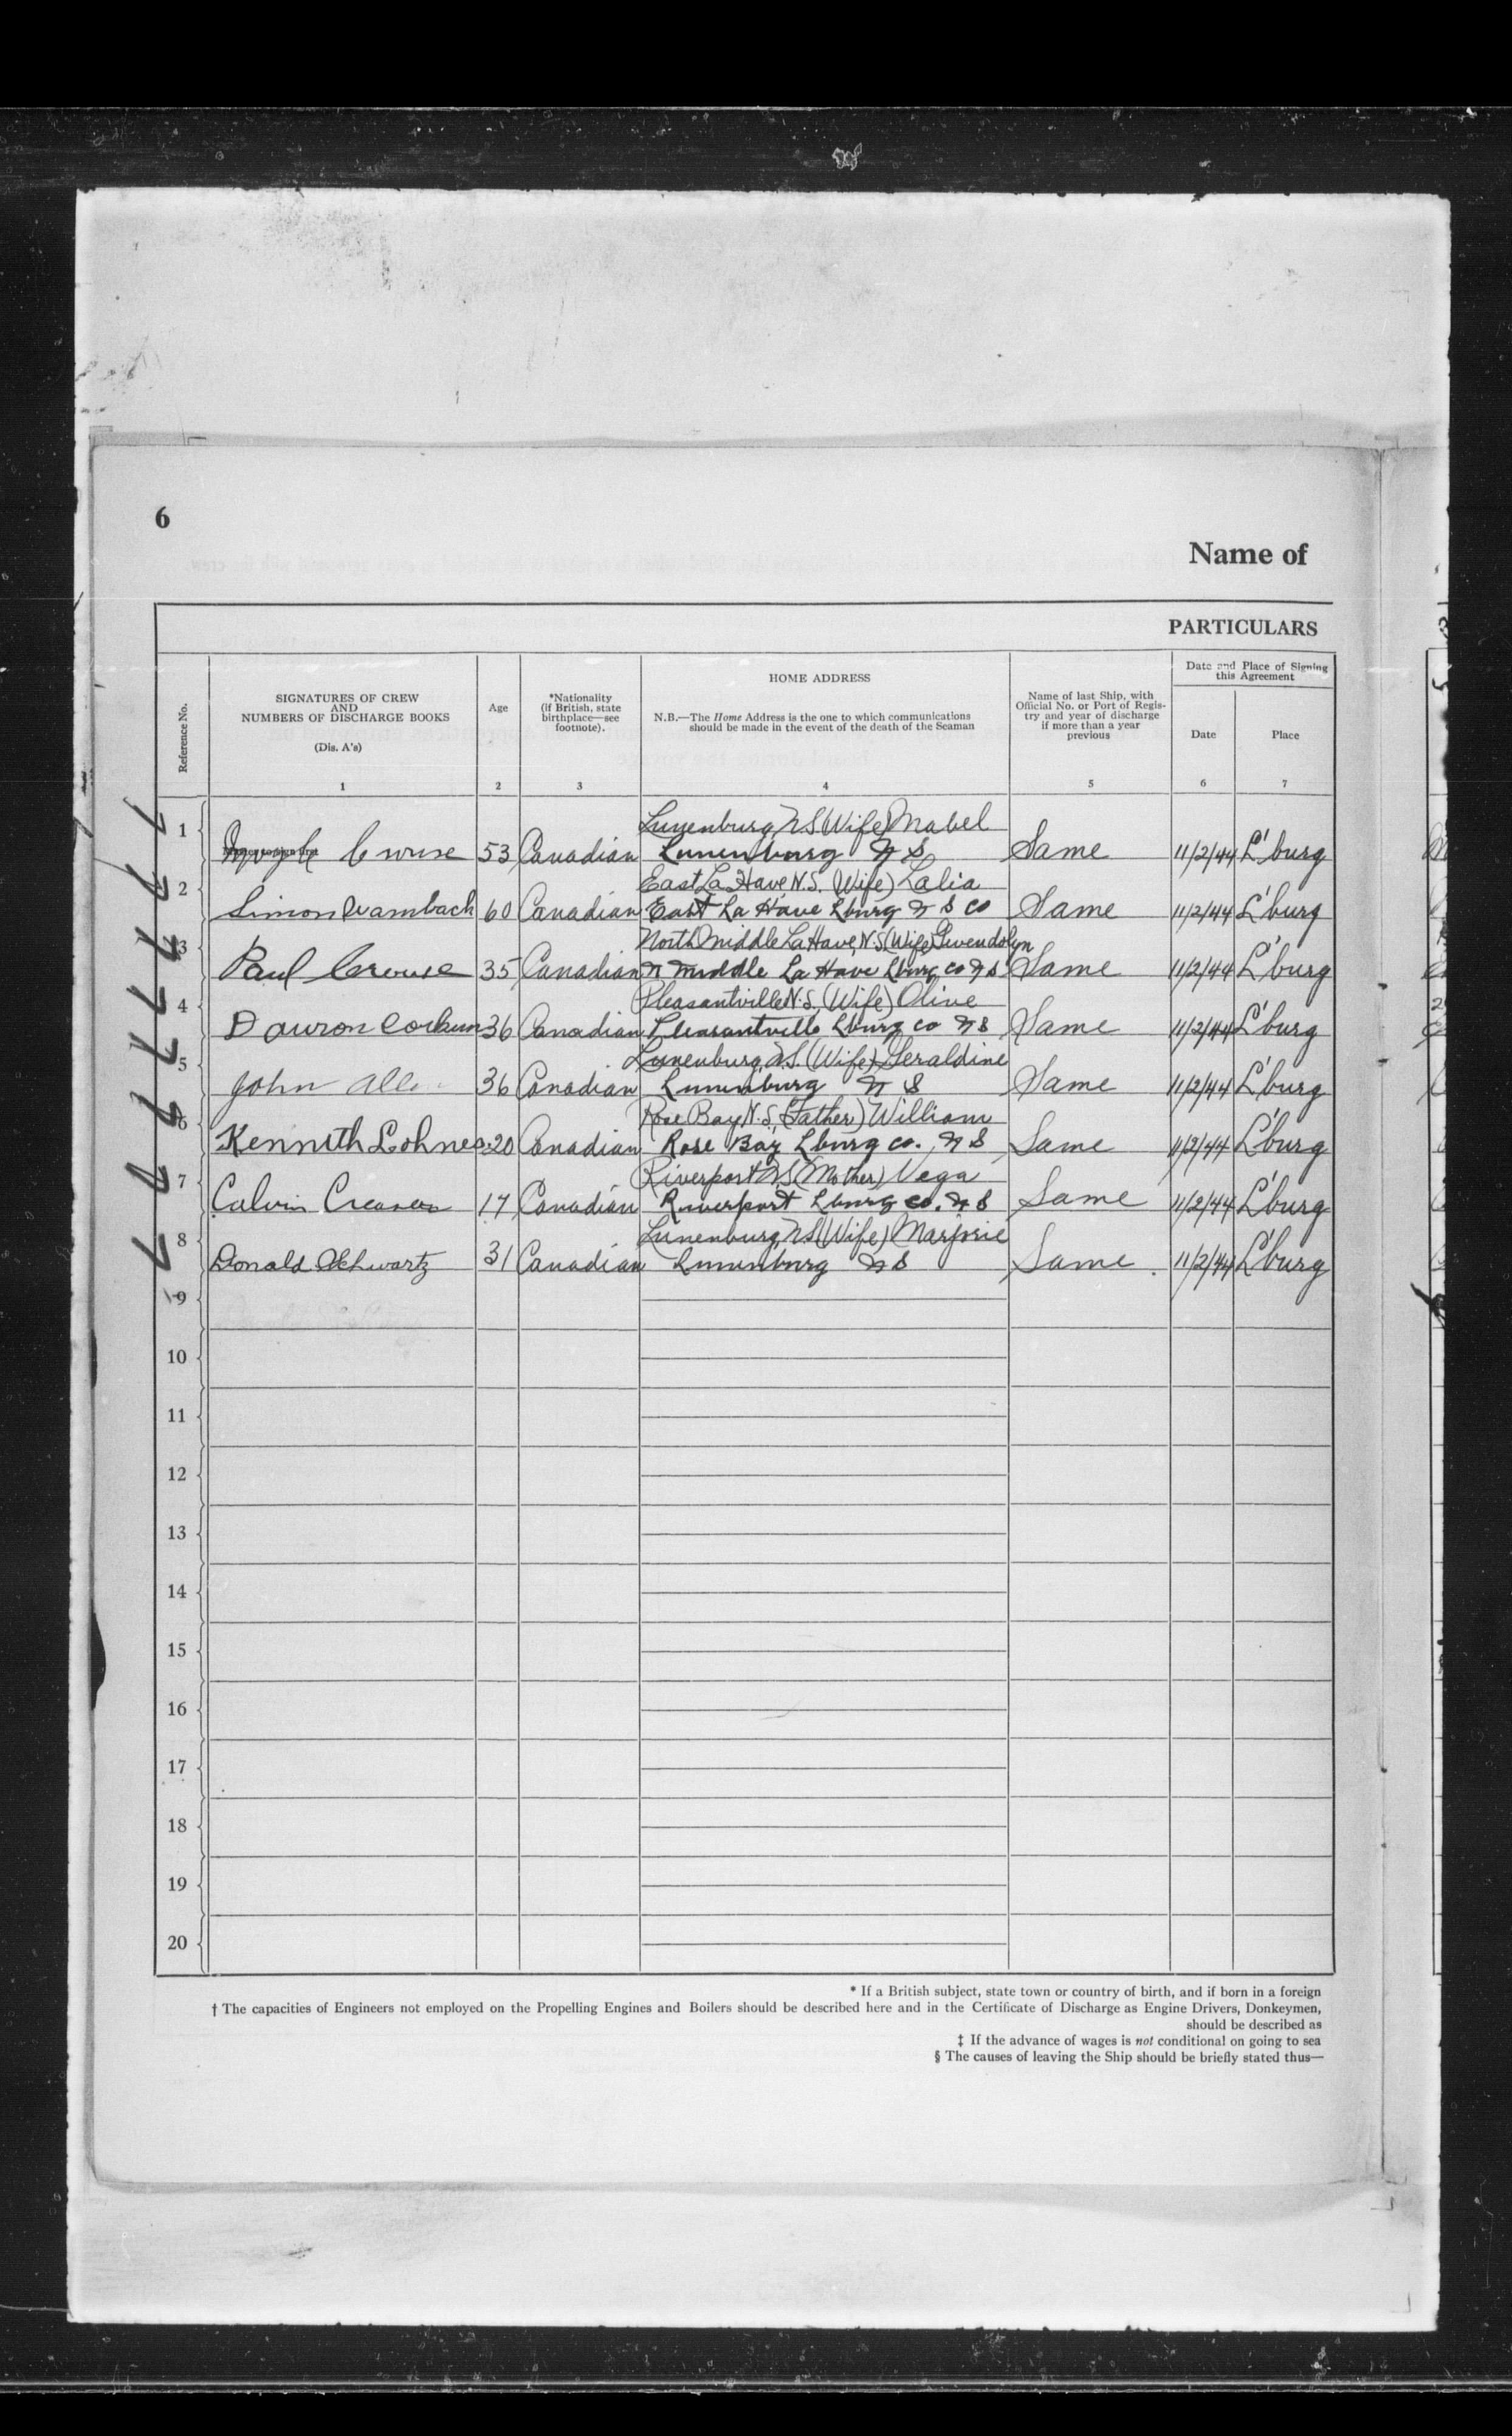 6
Name of
PARTICULARS
Reference No.
SIGNATURES OF CREW
AND
NUMBERS OF DISCHARGE BOOKS
(Dis. A's)
1
Age
2
*Nationality
(if British, state
birthplace—see
footnote).
3
HOME ADDRESS
N.B.—The Home Address is the one to which communications
should be made in the event of the death of the Seaman
4
Name of last Ship, with
Official No. or Port of Regis-
try and year of discharge
if more than a year
previous
5
Date and Place of Signing
this Agreement
Date
6
Place
7
Lunenburg, N S (Wife) Mabel
1 Crouse 53 Canadian Lunenburg N S Same 11/2/44 L'burg
East La Have N.S. (Wife) Lalia
2 Simon Wambach 60 Canadian East La Have Lburg N S Co Same 11/2/44 L'burg
North Middle La Have, N.S. (Wife) Gwendolyn
3 Paul Crouse 35 Canadian N Middle La Have Lburg Co N S Same 11/2/44 L'burg
Pleasantville N.S. (Wife) Olive
4 Corkum 36 Canadian Pleasantville Lburg Co N S Same 11/2/44 L'burg
Lunenburg, N.S. (Wife) Geraldine
5 John 36 Canadian Lunenburg N S Same 11/2/44 L'burg
Rose Bay N.S. (Father) William
6 Kenneth Lohnes 20 Canadian Rose Bay Lburg Co. N S Same 11/2/44 L'burg
Riverport N S (Mother) Vega
7 Calvin Creaser 17 Canadian Riverport Lburg Co. N S Same 11/2/44 L'burg
Lunenburg, N S (Wife) Marjorie
8 Donald Schwartz 31 Canadian Lunenburg N S Same 11/2/44 L'burg
9
10
11
12
13
14
15
16
17
18
19
20
* If a British subject, state town or country of birth, and if born in a foreign
† The capacities of Engineers not employed on the Propelling Engines and Boilers should be described here and in the Certificate of Discharge as Engine Drivers, Donkeymen,
should be described as
‡ If the advance of wages is not conditional on going to sea
§ The causes of leaving the Ship should be briefly stated thus—